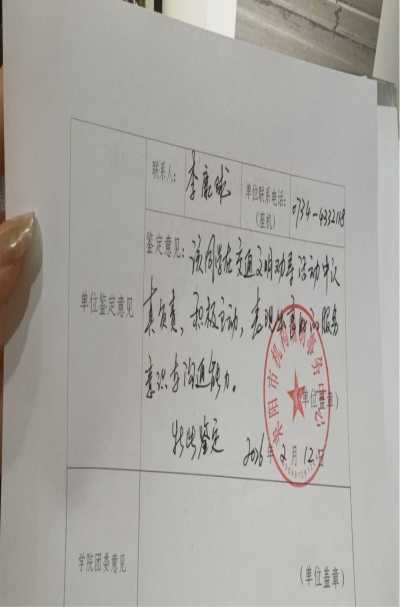 联系人: 李鹿球 单位联系电话: 0734-4332118
(座机)
单位鉴定意见
鉴定意见: 该同学在交通文明劝导活动中认
真负责, 积极主动, 表现出良好的服务
意识与沟通能力。
(单位盖章)
特此鉴定 2026年2月12日
耒阳市 事务中心
学院团委意见
(单位盖章)